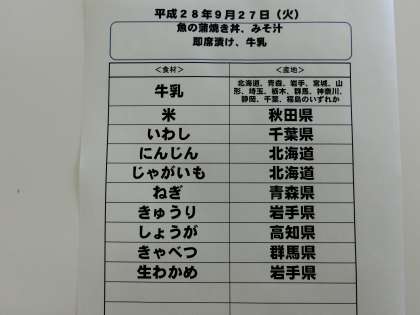 平成28年9月27日（火）
魚の蒲焼き丼、みそ汁
即席漬け、牛乳
＜食材＞ ＜産地＞
牛乳 北海道、青森、岩手、宮城、山
形、埼玉、栃木、群馬、神奈川、
静岡、千葉、福島のいずれか
米 秋田県
いわし 千葉県
にんじん 北海道
じゃがいも 北海道
ねぎ 青森県
きゅうり 岩手県
しょうが 高知県
きゃべつ 群馬県
生わかめ 岩手県